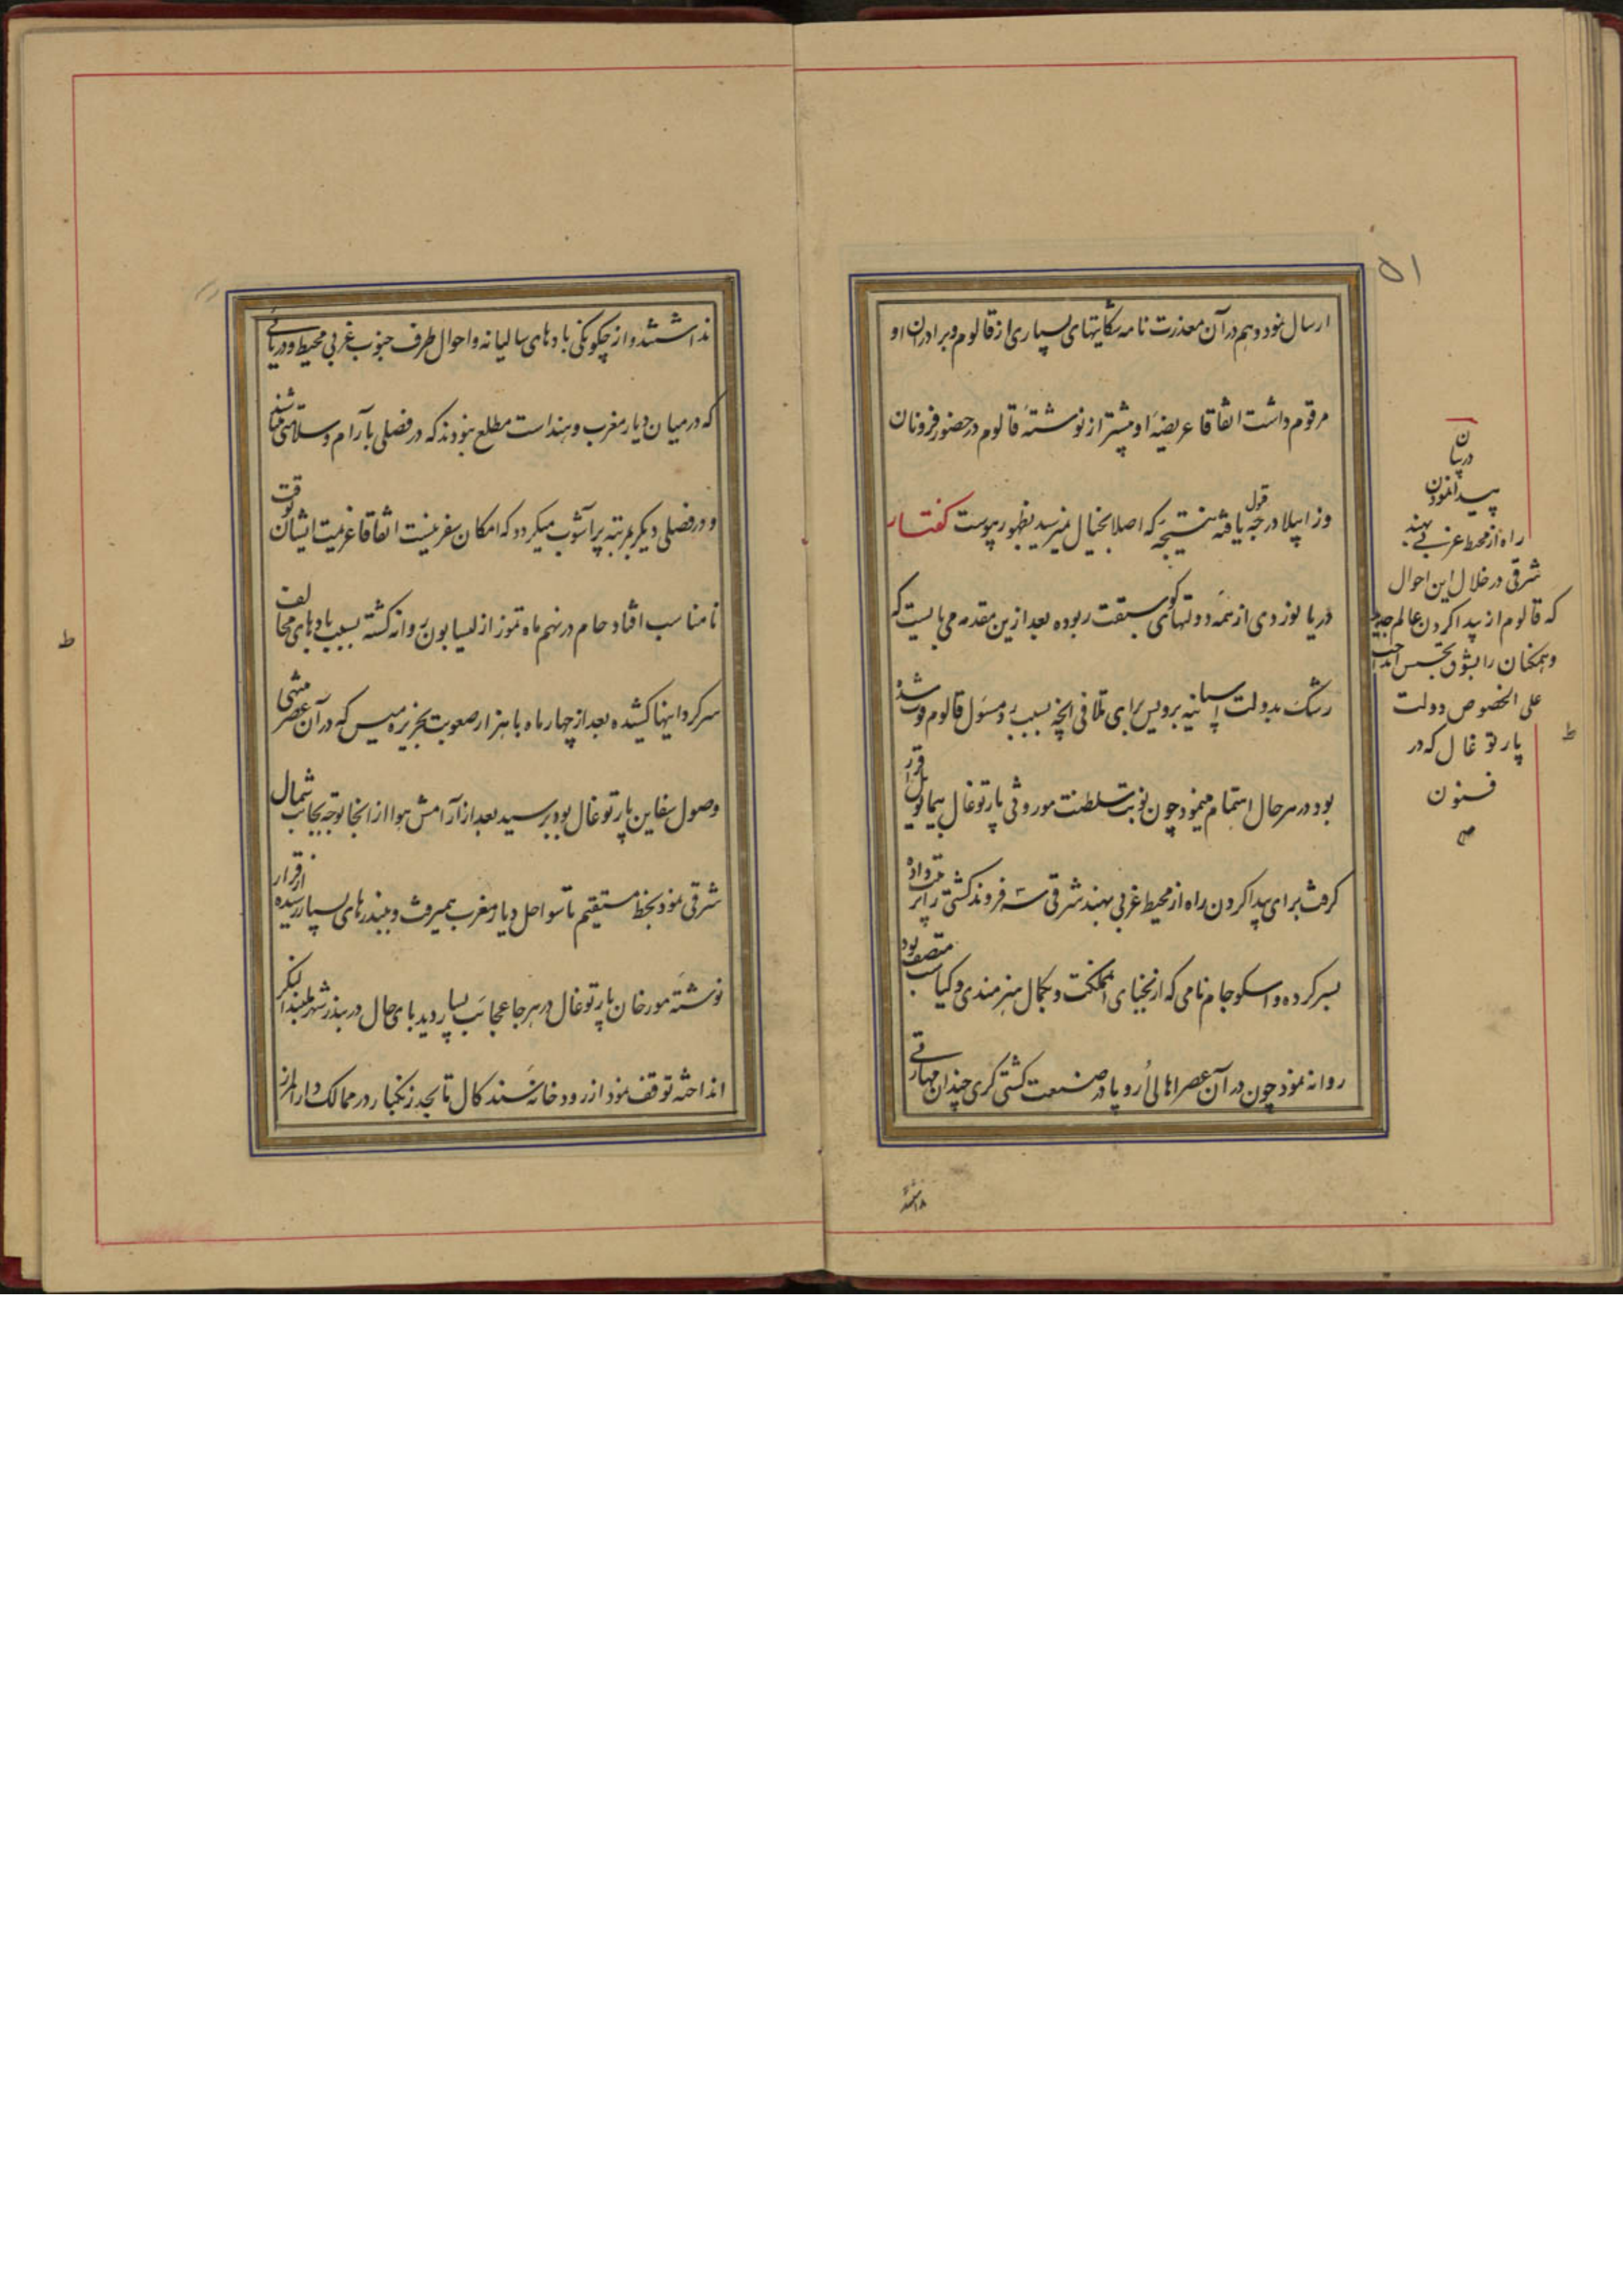 ۵۱
ارسال نمود و هم در آن معذرت نامه شکایتهای بسیاری از قالوم و برادران او
مرقوم داشت اتفاقا عریضهٔ او پیشتر از نوشتهٔ قالوم در حضور فرونان
و زاپیلا درجهٔ قبول یافته نتیجهٔ که اصلا بخیال نمیرسید بظهور پیوست گفتار
در یا نوزدی از همه دولتها کوی سبقت ربوده بعد ازین مقدمه می بایست که
رشک بدولت اسپانیه برد پس برای تلافی آنچه بسبب رد مسئول قالوم فوت شده
بود در هر حال اهتمام مینمود چون نوبت سلطنت موروثی پارتوغال بیمانویل قرار
گرفت برای پیدا کردن راه از محیط غربی بهند شرقی سه فروند کشتی ترتیب داده
بسر کرده واسکو جام نامی که از نجبای آنمملکت و بکمال هنرمندی و کیاست متصف بود
روانه نمود چون در آن عصر اهالی اروپا در صنعت کشتی گری چندان مهارتی
در بیان
پیدا نمودن
راه از محیط غربی بهند
شرقی در خلال این احوال
که قالوم از پیدا کردن عالم جدید
و همکنان را بشوق تجسس انداخت
علی الخصوص دولت
پارتوغال که در
فنون
صح
ط
نداشتند
نداشتند و از چگونگی بادهای سالیانه و احوال طرف جنوب غربی محیط و دریائی
که در میان دیار مغرب و هند است مطلع نبودند که در فصلی بآرام و سلامتی میباشد
و در فصلی دیگر بمرتبه پر آشوب میکردد که امکان سفر نیست اتفاقا عزیمت ایشان بوقت
نامناسب افتاد جام در نهم ماه تموز از لسابون روانه کشته بسبب بادهای مخالف
سرکردانیها کشیده بعد از چهار ماه با هزار صعوبت بجزیره میس که در آن عصر منتهی
وصول سفاین پارتوغال بود برسید بعد از آرامش هوا از انجا توجه بجانب شمال
شرقی نمود بخط مستقیم تا سواحل دیار مغرب میرفت و ببندرهای بسیار رسیده از قرار
نوشتهٔ مورخان پارتوغال در هر جا عجائب بسیار دید بای حال در بندر شهر ملیندا لنکر
انداخته توقف نمود از رودخانهٔ سندکال تا بحد زنکبار در ممالک
ط